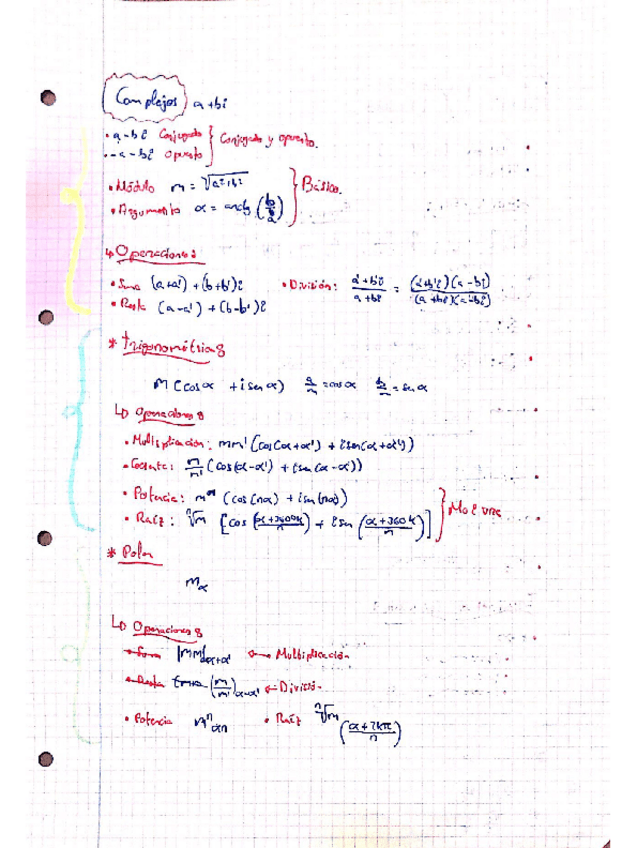 Complejos a+bi
• a-bi Conjugado } Conjugado y opuesto.
• -a-bi Opuesto
• Módulo m = √a²+b² } Básico.
• Argumento α = arctg (b/a)
↳ Operaciones
• Suma (a+a') + (b+b')i
• Resta (a-a') + (b-b')i
• División: a'+b'i / a+bi = (a'+b'i)(a-bi) / (a+bi)(a-bi)
* Trigonométricas
m (cos α + i sen α) a/m = cos α b/m = sen α
↳ Operaciones
• Multiplicación: mm' (cos(α+α') + i sen(α+α'))
• Cociente: m/m' (cos(α-α') + i sen(α-α'))
• Potencia: mⁿ (cos(nα) + i sen(nα))
• Raíz: ⁿ√m [cos (α+360k / n) + i sen (α+360k / n)] } Moivre
* Polar
mα
↳ Operaciones
• Suma (mm')α+α' ⟵ Multiplicación
• Resta (m/m')α-α' ⟵ División
• Potencia mⁿ αn • Raíz ⁿ√m (α+2kπ / n)